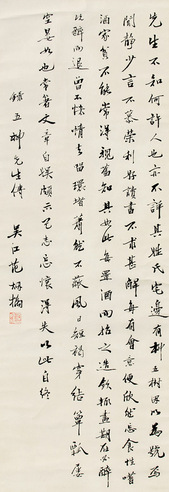 先生不知何許人也亦不詳其姓氏宅邊有柳五樹因以為號焉
閒靜少言不慕榮利好讀書不求甚解每有會意便欣然忘食性嗜
酒家貧不能常得親舊知其如此每置酒而招之造飲輒盡期在必醉
既醉而退曾不恡情去留環堵蕭然不蔽風日短褐穿結簞瓢屢
空晏如也常著文章自娛頗示己志忘懷得失以此自終
錄五柳先生傳 吳江范烟橋